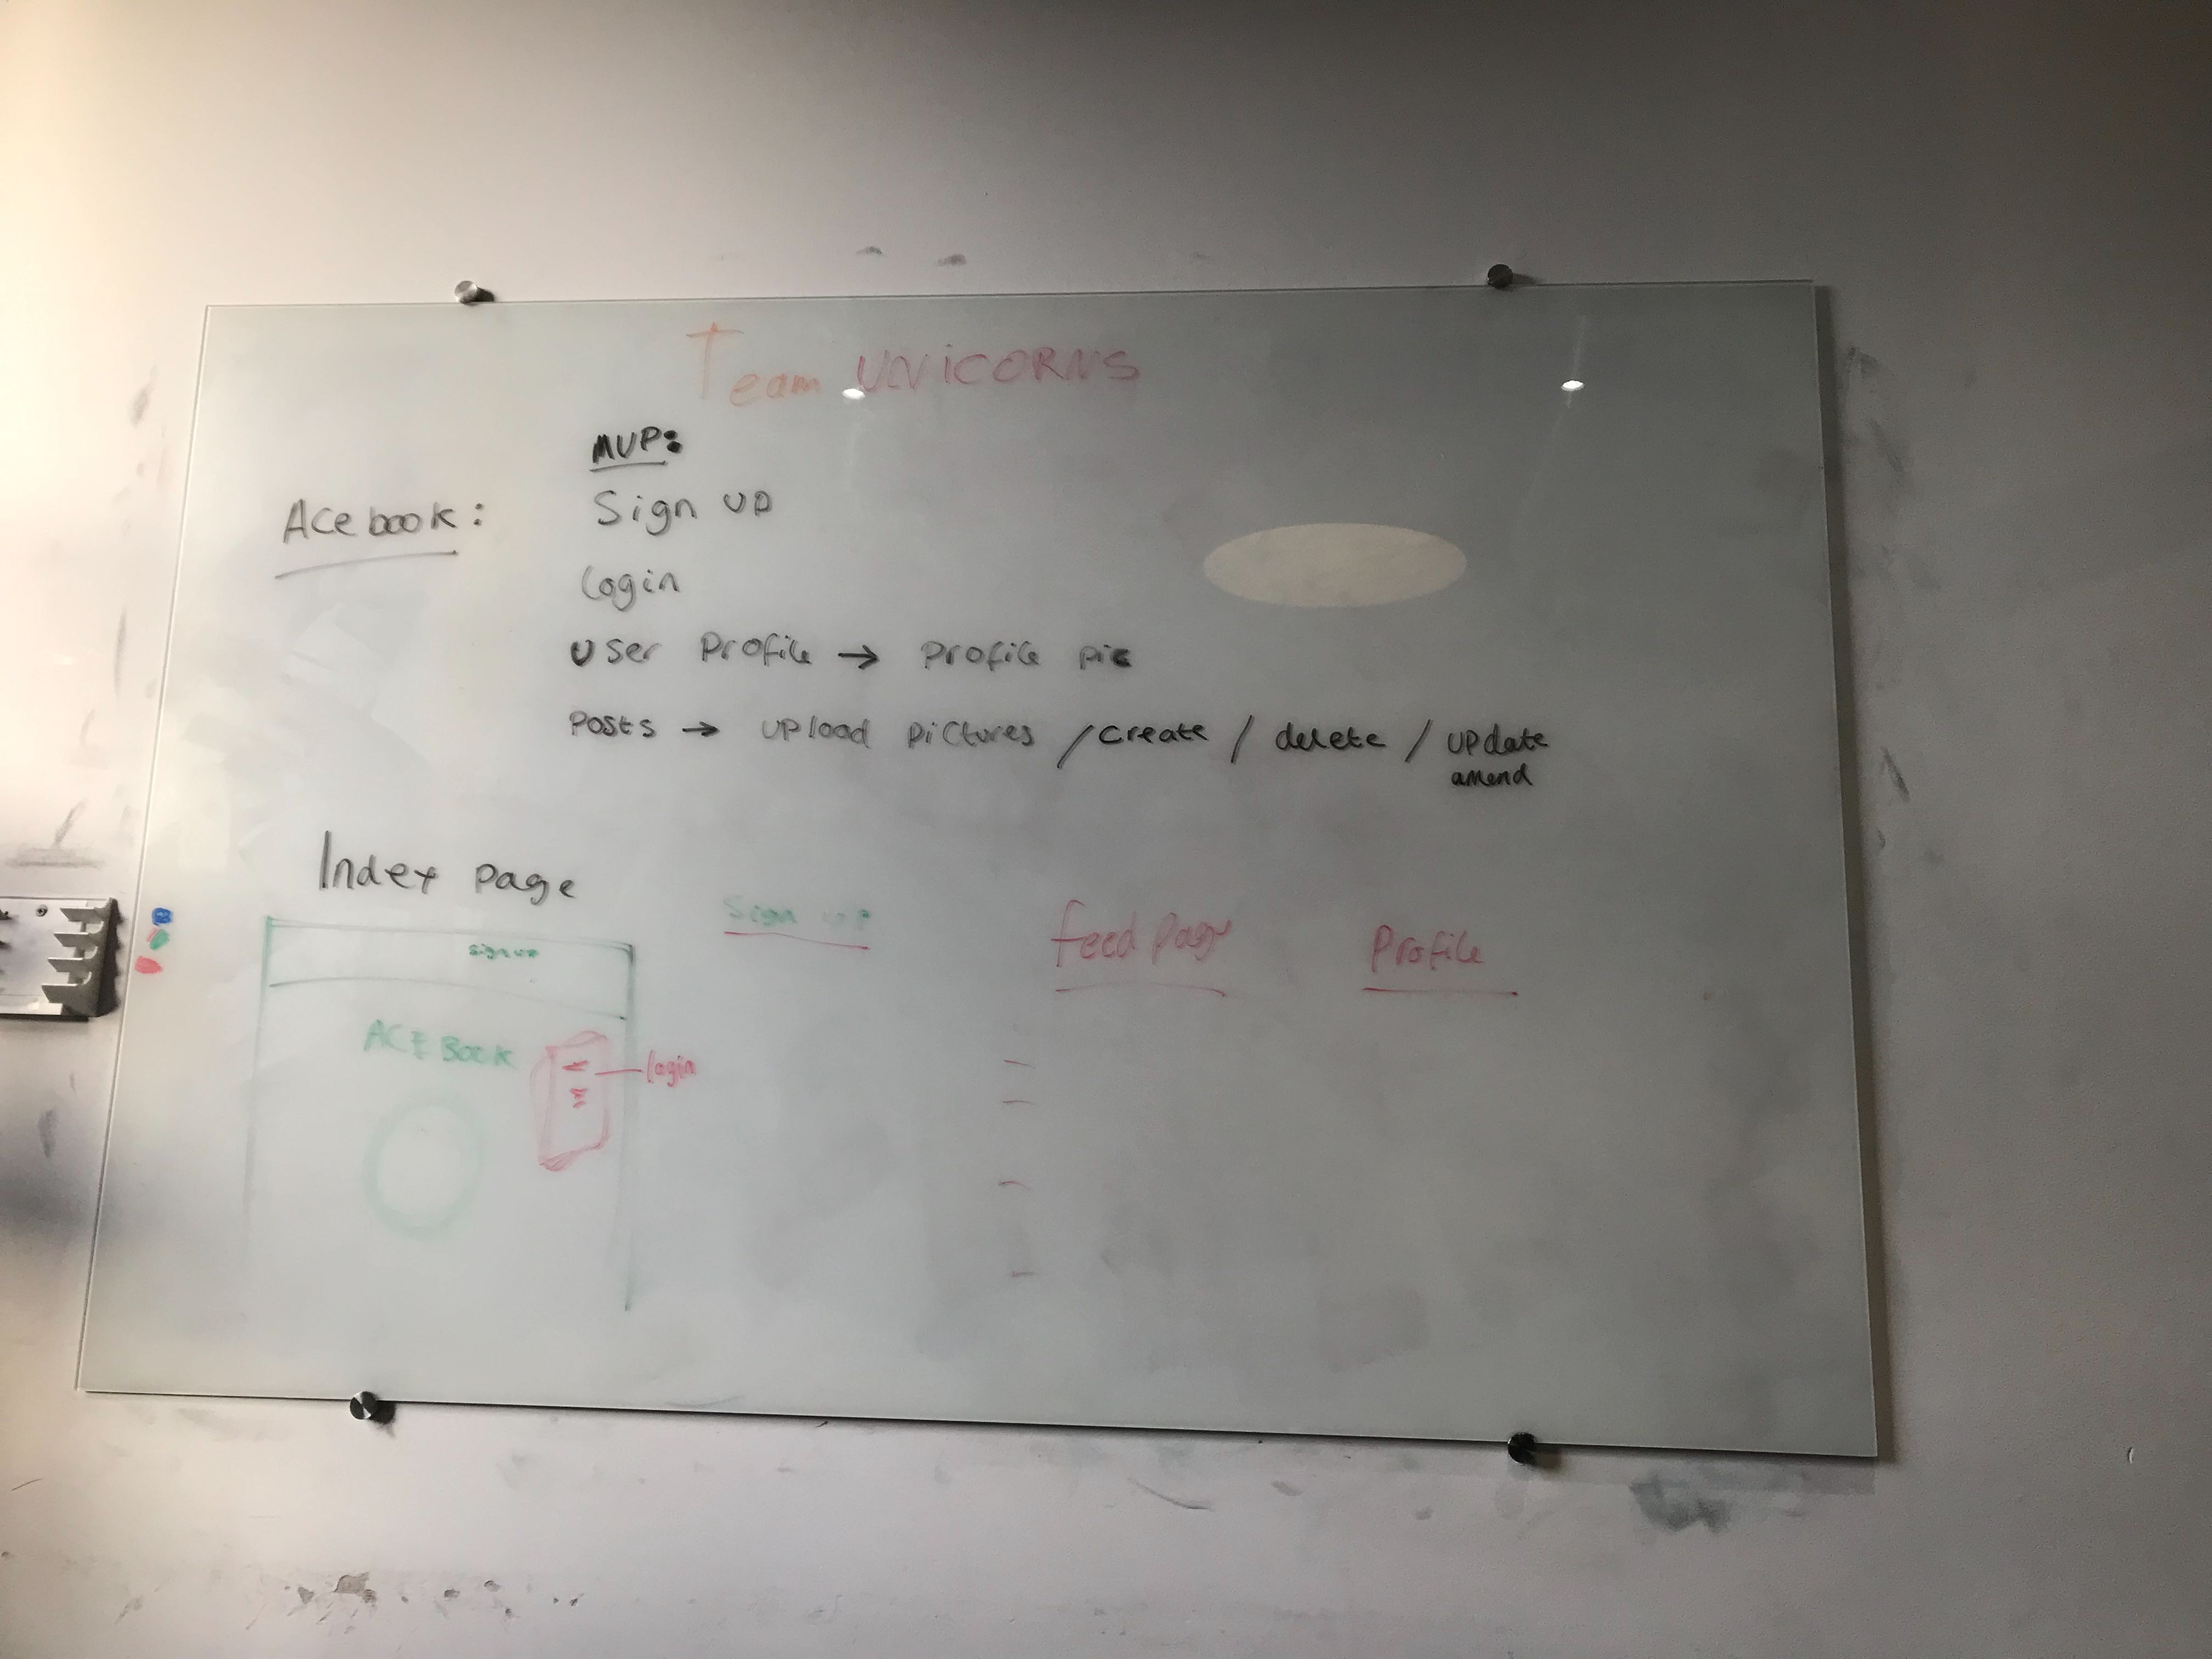 Team UNICORNS
MVP:
Acebook:
Sign up
Login
User Profile → Profile pic
Posts → upload pictures / create / delete / update
amend
Index page
Sign up
feed page
Profile
sign up
ACEBOOK
login